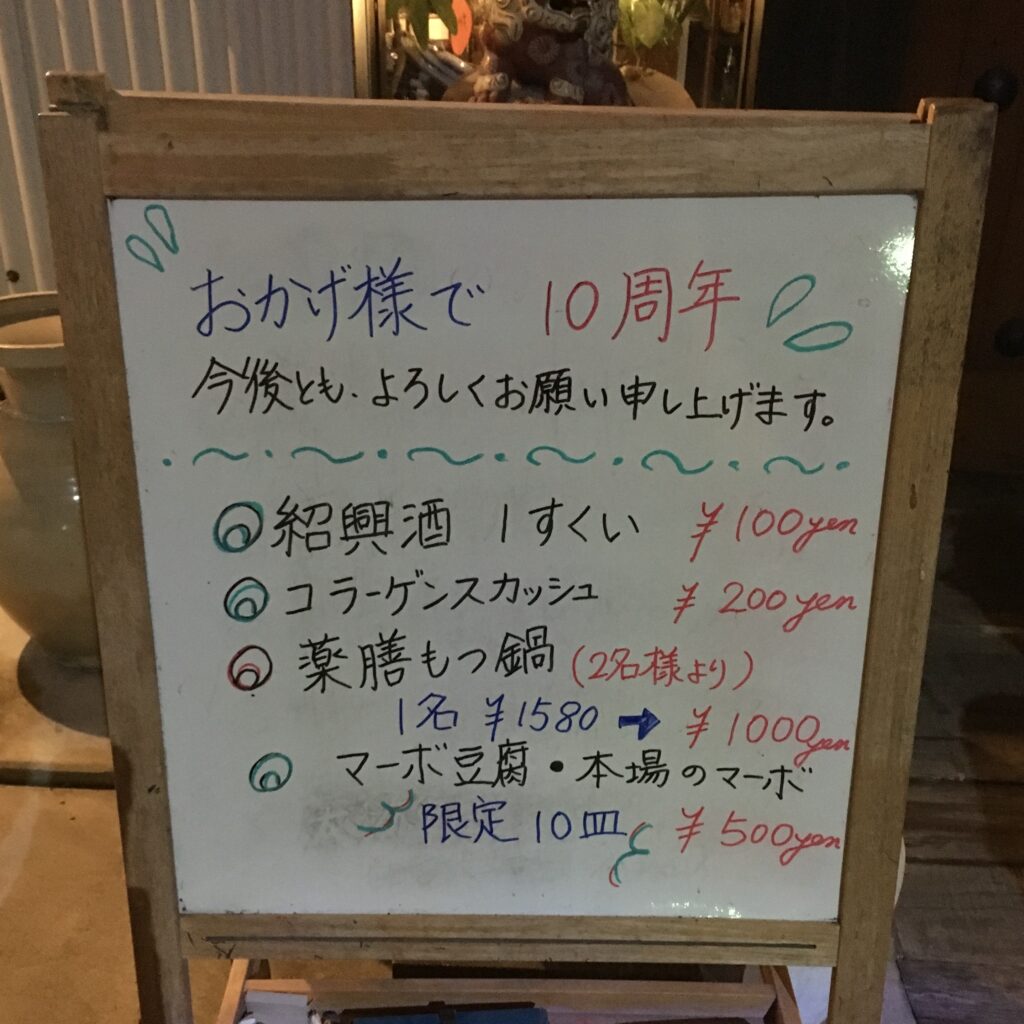 おかげ様で 10周年
今後とも、よろしくお願い申し上げます。
紹興酒 1すくい ¥100yen
コラーゲンスカッシュ ¥200yen
薬膳もつ鍋 (2名様より)
1名 ¥1580 → ¥1000yen
マーボ豆腐・本場のマーボ
限定10皿 ¥500yen